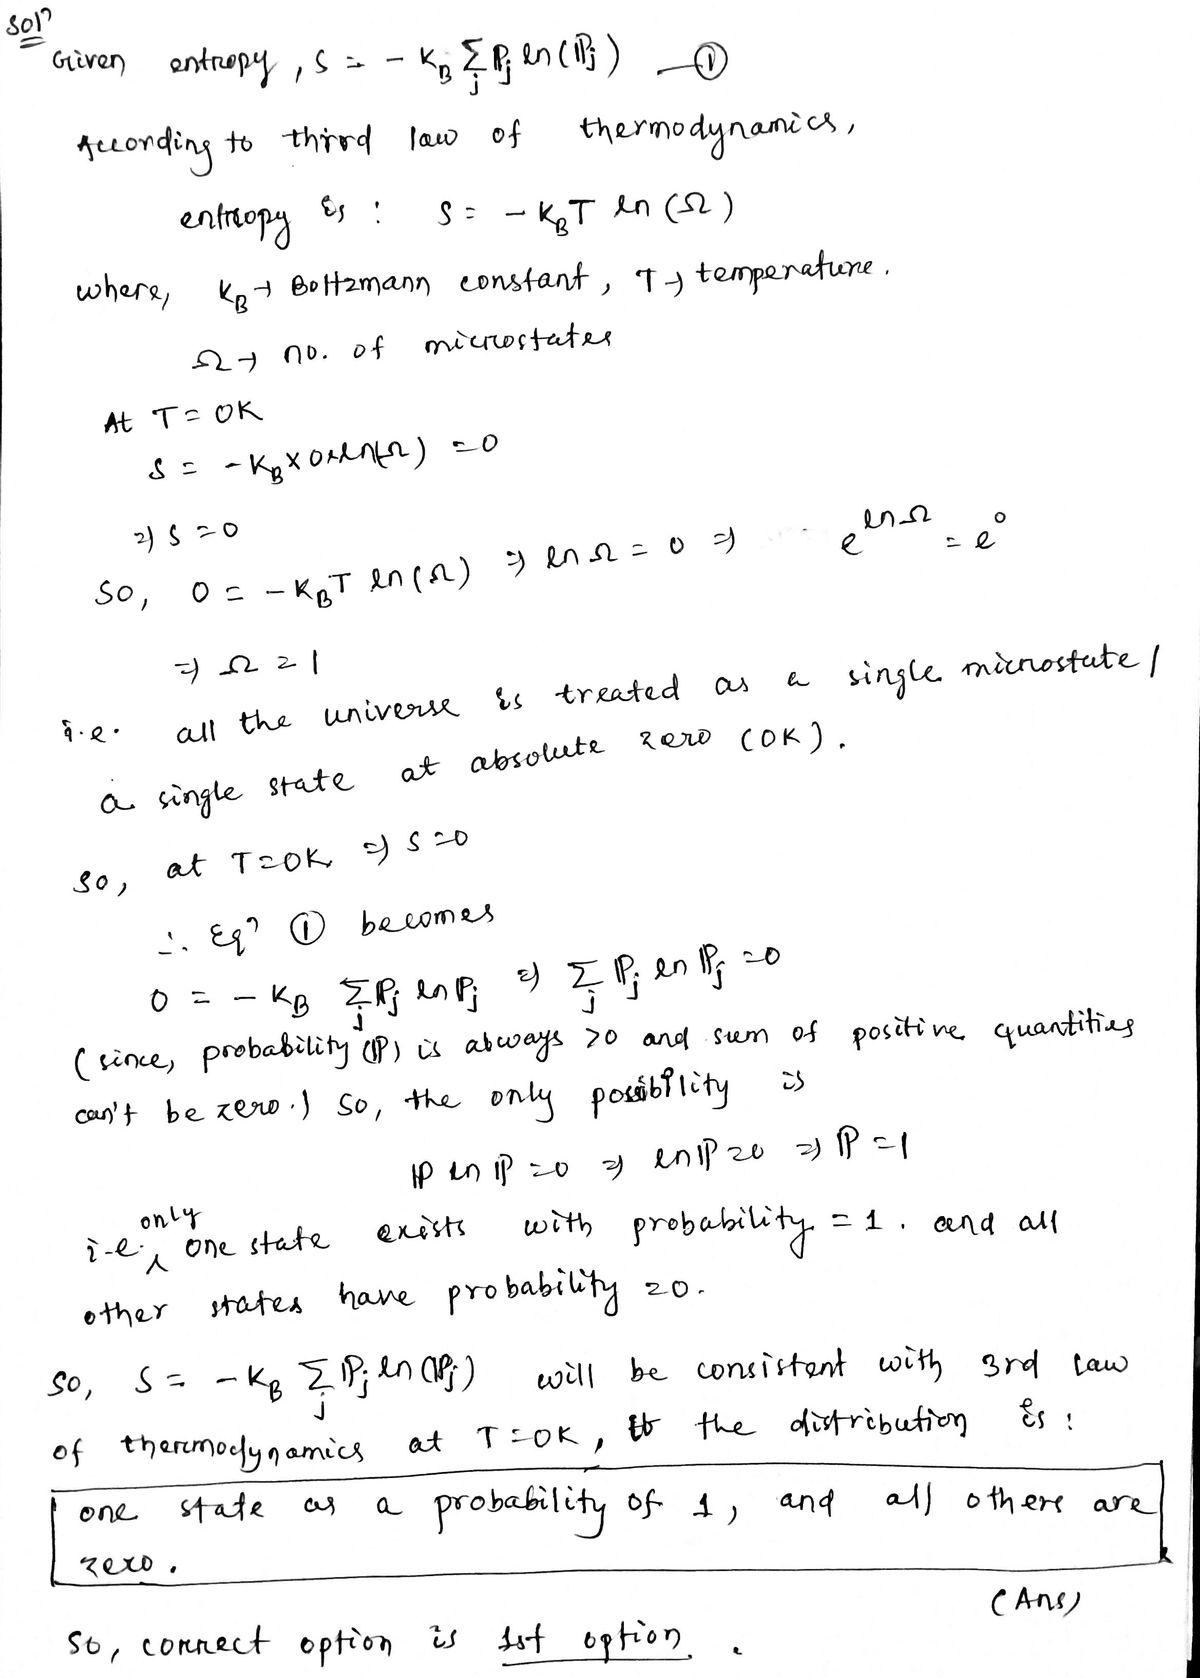 Solⁿ
Given entropy, S = - K_B Σ_j ℙ_j ln(ℙ_j) —①
According to third law of thermodynamics,
entropy is : S = - K_B T ln(Ω)
where, K_B → Boltzmann constant, T → temperature.
Ω → no. of microstates
At T = 0K
S = - K_B × 0 × ln(Ω) = 0
⇒ S = 0
So, 0 = - K_B T ln(Ω) ⇒ ln Ω = 0 ⇒ e^{ln Ω} = e^0
⇒ Ω = 1
i.e. all the universe is treated as a single microstate /
a single state at absolute zero (0K).
So, at T = 0K ⇒ S = 0
∴ Eqⁿ ① becomes
0 = - K_B Σ_j ℙ_j ln ℙ_j ⇒ Σ_j ℙ_j ln ℙ_j = 0
(since, probability (ℙ) is always >0 and sum of positive quantities
can't be zero.) So, the only possibility is
ℙ ln ℙ = 0 ⇒ ln ℙ = 0 ⇒ ℙ = 1
i.e. only one state exists with probability = 1. and all
other states have probability = 0.
So, S = - K_B Σ_j ℙ_j ln(ℙ_j) will be consistent with 3rd law
of thermodynamics at T = 0K, the distribution is :
one state as a probability of 1, and all others are
zero.
(Ans)
So, correct option is 1st option.